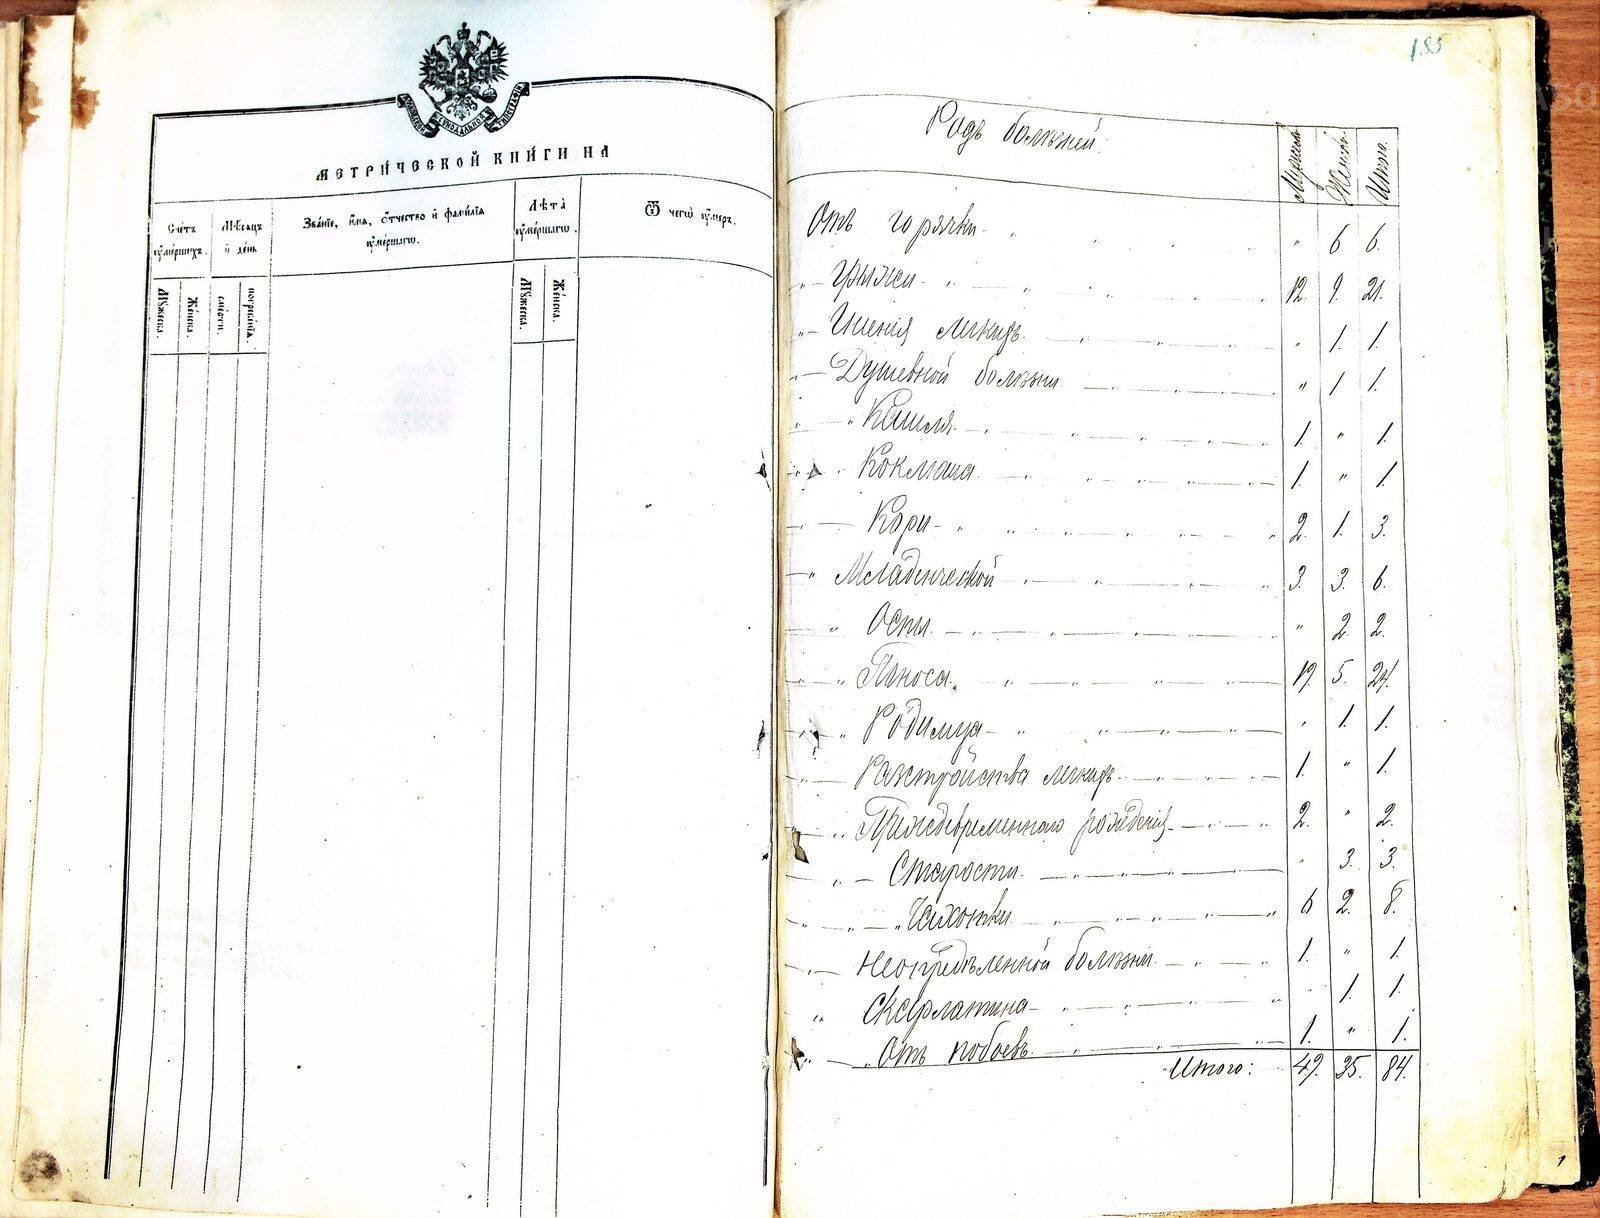 185
МОСКОВСКОЙ СѴНОДАЛЬНОЙ ТИПОГРАФІИ
МЕТРИ́ЧЕСКОЙ КНИ́ГИ НА
Сче́тъ ᲂу҆ме́ршихъ.
Мѣ́сяцъ и҆ де́нь
Зва́нїе, и҆́мя, ѻ҆́тчество и҆ фами́лїя ᲂу҆ме́ршагѡ.
Лѣ́та ᲂу҆ме́ршагѡ.
Ѿ чегѡ̀ ᲂу҆́меръ.
Мꙋ́жеска.
Же́нска.
сме́рти.
погребе́нїя.
Мꙋ́жеска.
Же́нска.
Родъ болѣзней.
Мужска
Женска
Итого.
Отъ горячки - " 6. 6.
" Грыжи - 12. 9. 21.
" Гніенія легкихъ - " 1. 1.
" Душевной болѣзни - " 1 1.
" Кашля - 1. " 1.
" Коклюша - 1. " 1.
" Кори - 2. 1. 3.
" Младенческой - 3. 3. 6.
" Оспы - " 2. 2.
" Поноса - 19. 5. 24.
" Родимца - " 1. 1.
" Разстройства легкихъ - 1. " 1.
" Преждевременнаго рожденія - 2. " 2.
" Старости - " 3. 3.
" Чахотки - 6 2. 8.
" Неопредѣленной болѣзни - 1. " 1.
" Скарлатина - " 1. 1.
" Отъ побоевъ - 1. " 1.
Итого: 49. 35. 84.